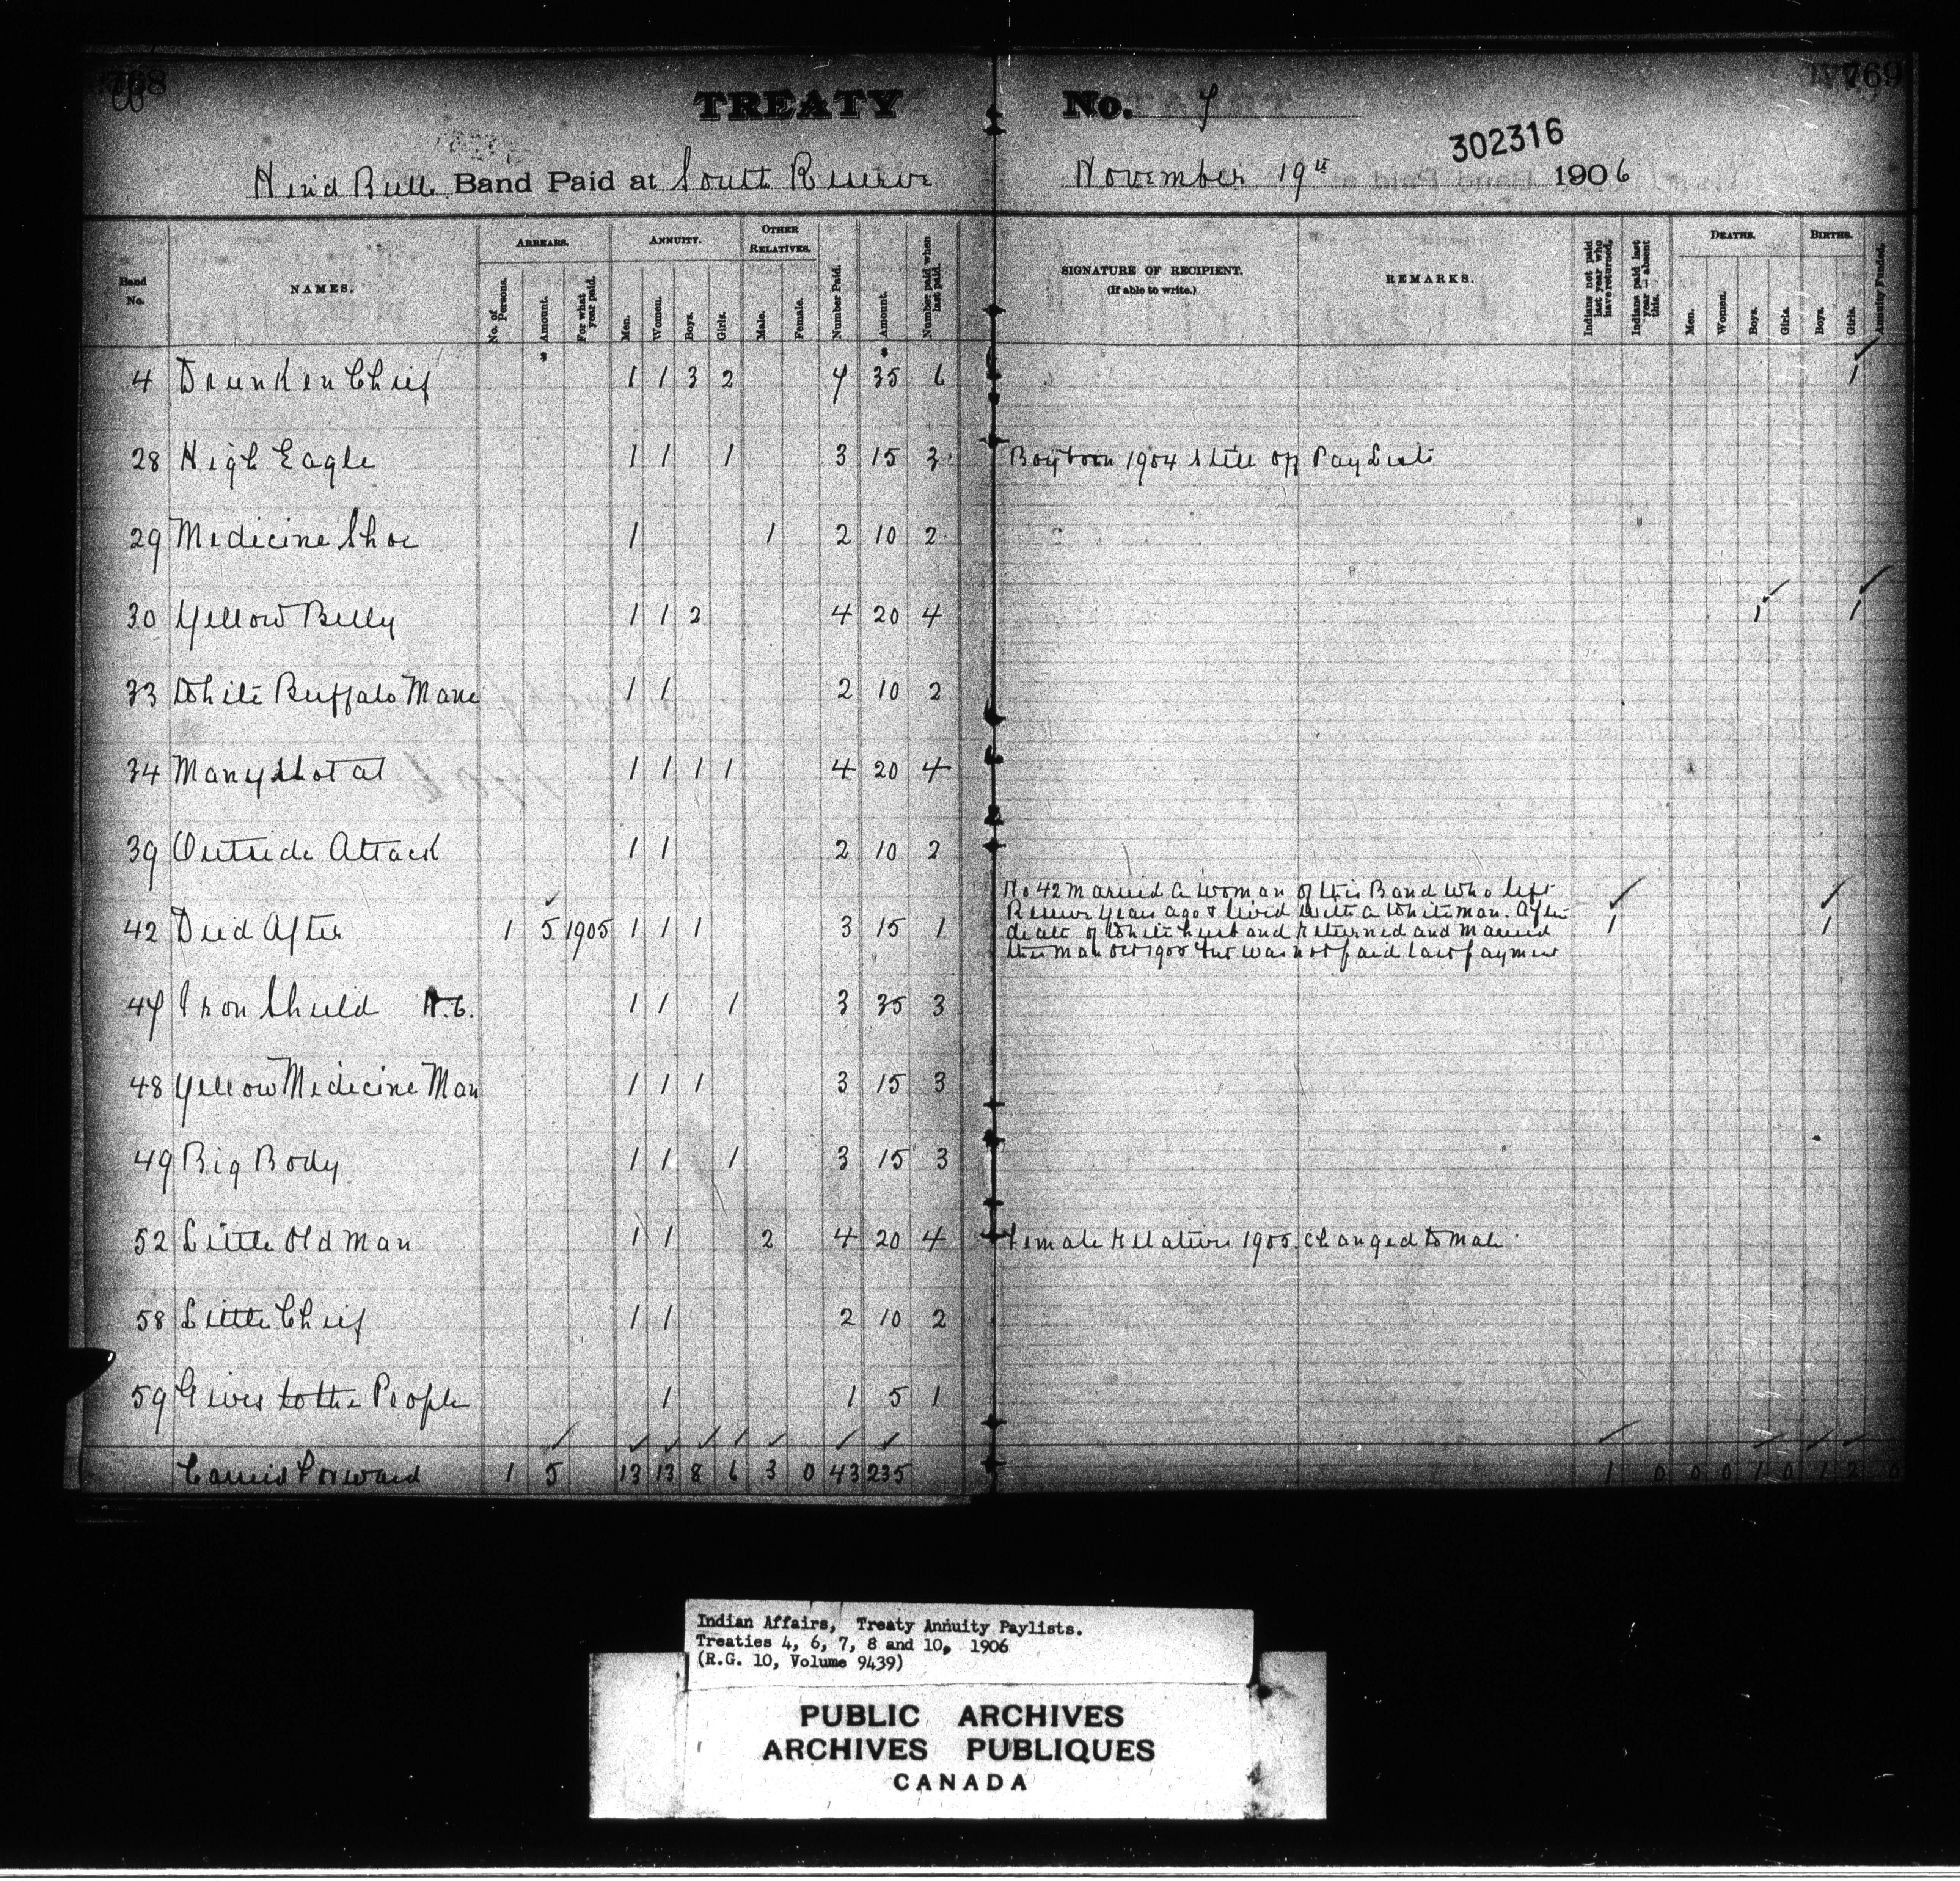 768
TREATY No. 7
769
302316
Hind Bull Band Paid at South Reserve November 19th 1906
Band No.
NAMES.
ARREARS.
No. of Persons.
Amount.
For what year paid.
ANNUITY.
Men.
Women.
Boys.
Girls.
OTHER RELATIVES.
Male.
Female.
Number Paid.
Amount.
Number paid when last paid.
SIGNATURE OF RECIPIENT.
(If able to write.)
REMARKS.
Indians not paid last year who have returned.
Indians paid last year—absent this.
DEATHS.
Men.
Women.
Boys.
Girls.
BIRTHS.
Boys.
Girls.
Annuity Funded.
4 Drunken Chief 1 1 3 2 7 35 6 1
28 High Eagle 1 1 1 3 15 3 Boy born 1904 still off Pay List
29 Medicine Shoe 1 1 2 10 2
30 Yellow Belly 1 1 2 4 20 4 1 1
33 White Buffalo Mane 1 1 2 10 2
34 Many Shot at 1 1 1 1 4 20 4
39 Outside Attack 1 1 2 10 2
42 Died After 1 5 1905 1 1 1 3 15 1 1 1
No 42 Married a woman of this Band who left
Reserve years ago & lived with a White man. After
death of White husband returned and married
this man Oct 1905 but was not paid last payment
47 Iron Shield H.C. 1 1 1 3 35 3
48 Yellow Medicine Man 1 1 1 3 15 3
49 Big Body 1 1 1 3 15 3
52 Little Old Man 1 1 2 4 20 4 Female Relative 1905. Changed to Male
58 Little Chief 1 1 2 10 2
59 Gives to the People 1 1 5 1
Carried Forward 1 5 13 13 8 6 3 0 43 235 1 0 0 0 1 0 1 2 0
Indian Affairs, Treaty Annuity Paylists.
Treaties 4, 6, 7, 8 and 10, 1906
(R.G. 10, Volume 9439)
PUBLIC ARCHIVES
ARCHIVES PUBLIQUES
CANADA